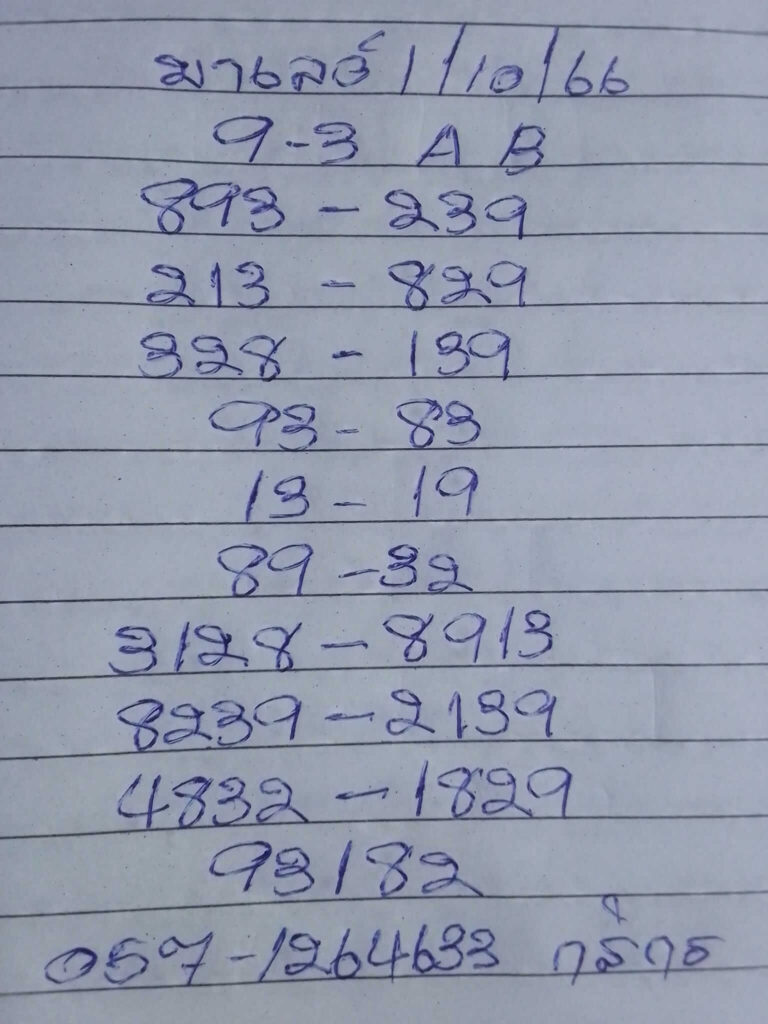 มาเลย์ 1/10/66
9-3 A B
893 - 239
213 - 829
328 - 139
93 - 83
13 - 19
89 - 32
3128 - 8913
8239 - 2139
4832 - 1829
93182
057-1264633